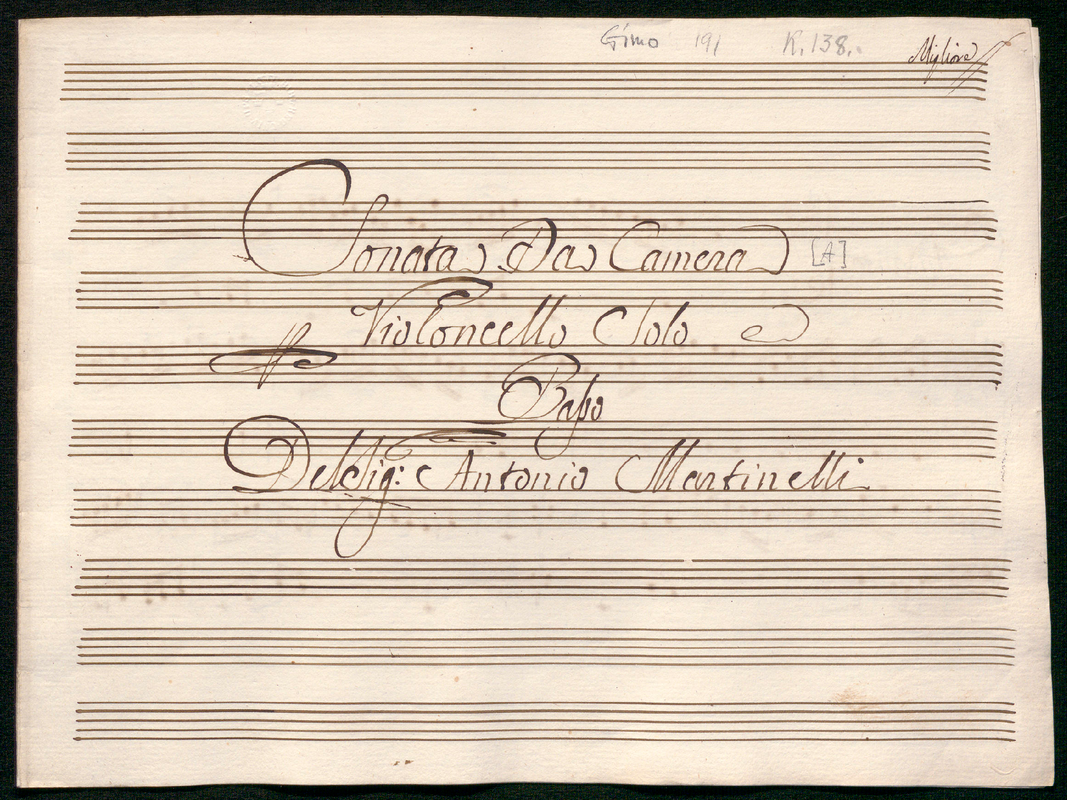 Gimo 191 R. 138.
Migliore
Sonata Da Camera [A]
Violoncello Solo e
Basso
Del Sig: Antonio Martinelli